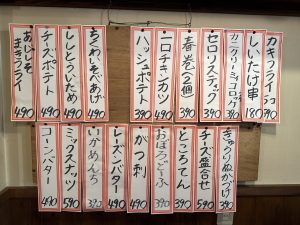 カキフライ
しいたけ串 180
カニクリームコロッケ
セロリスティック 390
春巻(2個) 390
一口チキンカツ 490
ハッシュポテト 390
ちくわいそべあげ 490
ししとういため 490
チーズポテト 490
あじしそ
まきフライ 490
きゅうりぬかづけ 390
チーズ盛合せ 590
ところてん 390
おぼろどうふ 390
がつ刺 490
レーズンバター 490
いかめんち 390
ミックスナッツ 590
コーンバター 490